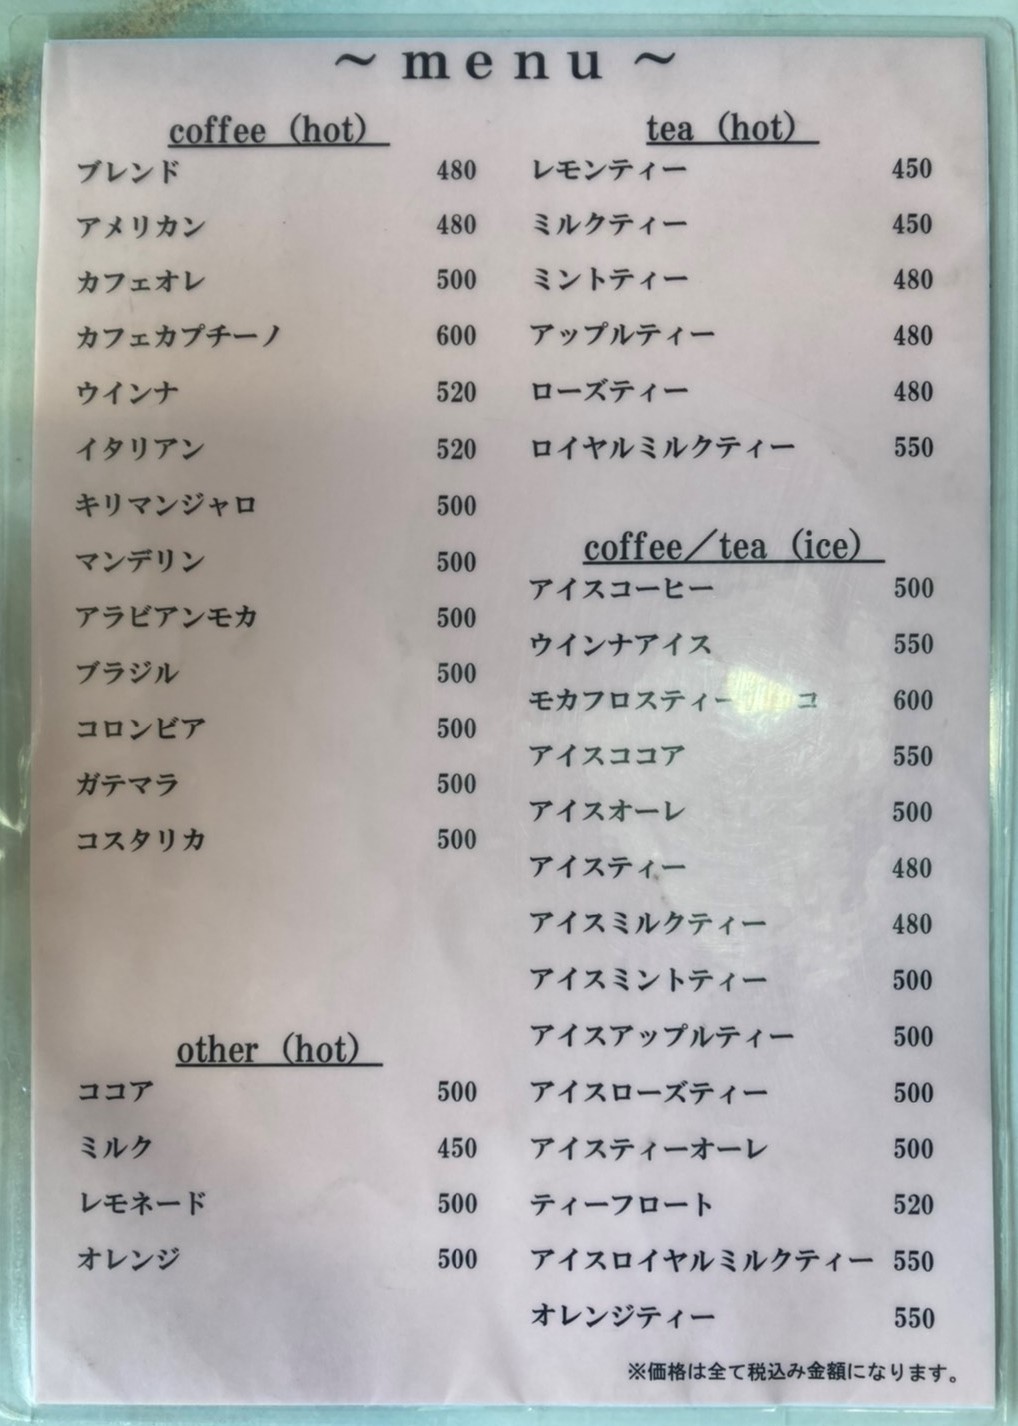 ～menu～
coffee (hot)
ブレンド 480
アメリカン 480
カフェオレ 500
カフェカプチーノ 600
ウインナ 520
イタリアン 520
キリマンジャロ 500
マンデリン 500
アラビアンモカ 500
ブラジル 500
コロンビア 500
ガテマラ 500
コスタリカ 500
other (hot)
ココア 500
ミルク 450
レモネード 500
オレンジ 500
tea (hot)
レモンティー 450
ミルクティー 450
ミントティー 480
アップルティー 480
ローズティー 480
ロイヤルミルクティー 550
coffee／tea (ice)
アイスコーヒー 500
ウインナアイス 550
モカフロスティー 600
アイスココア 550
アイスオーレ 500
アイスティー 480
アイスミルクティー 480
アイスミントティー 500
アイスアップルティー 500
アイスローズティー 500
アイスティーオーレ 500
ティーフロート 520
アイスロイヤルミルクティー 550
オレンジティー 550
※価格は全て税込み金額になります。